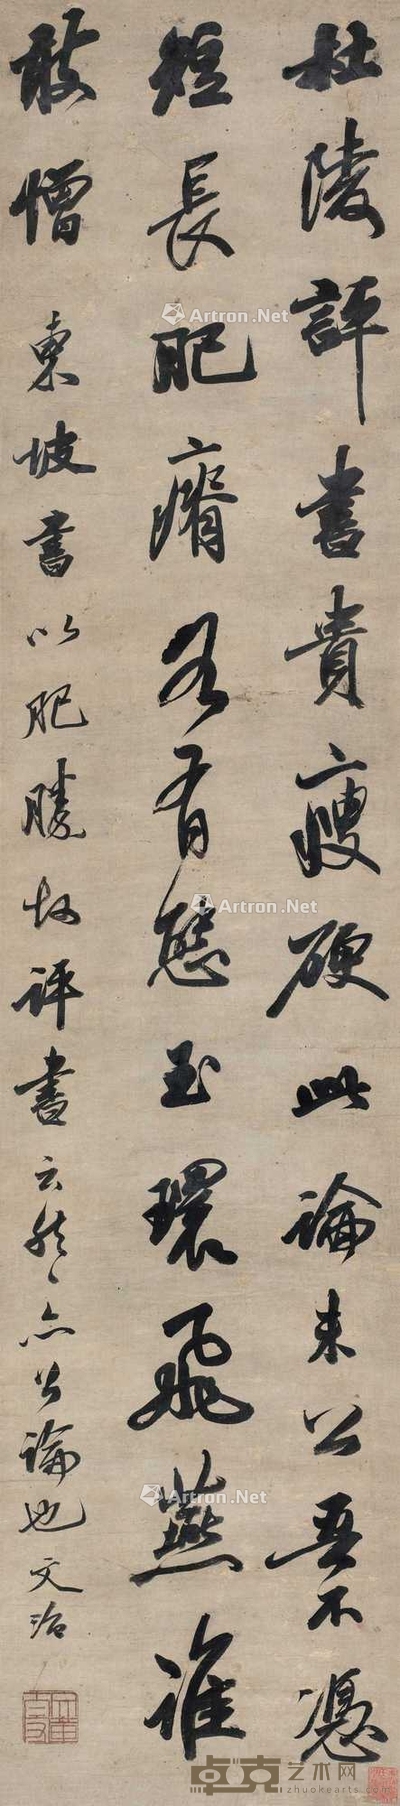 杜陵評書貴瘦硬此論未公吾不憑
短長肥瘠各有態玉環飛燕誰
敢憎東坡書以肥勝故評書云然〻亦公論也文治
Artron.Net
Artron.Net
Artron.Net
卓克艺术网
www.zhuokearts.com